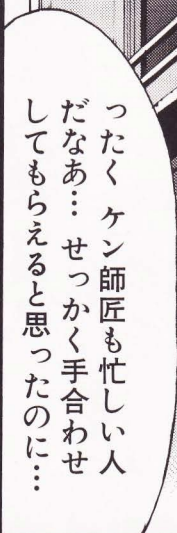 ったく ケン師匠も忙しい人
だなあ… せっかく手合わせ
してもらえると思ったのに…